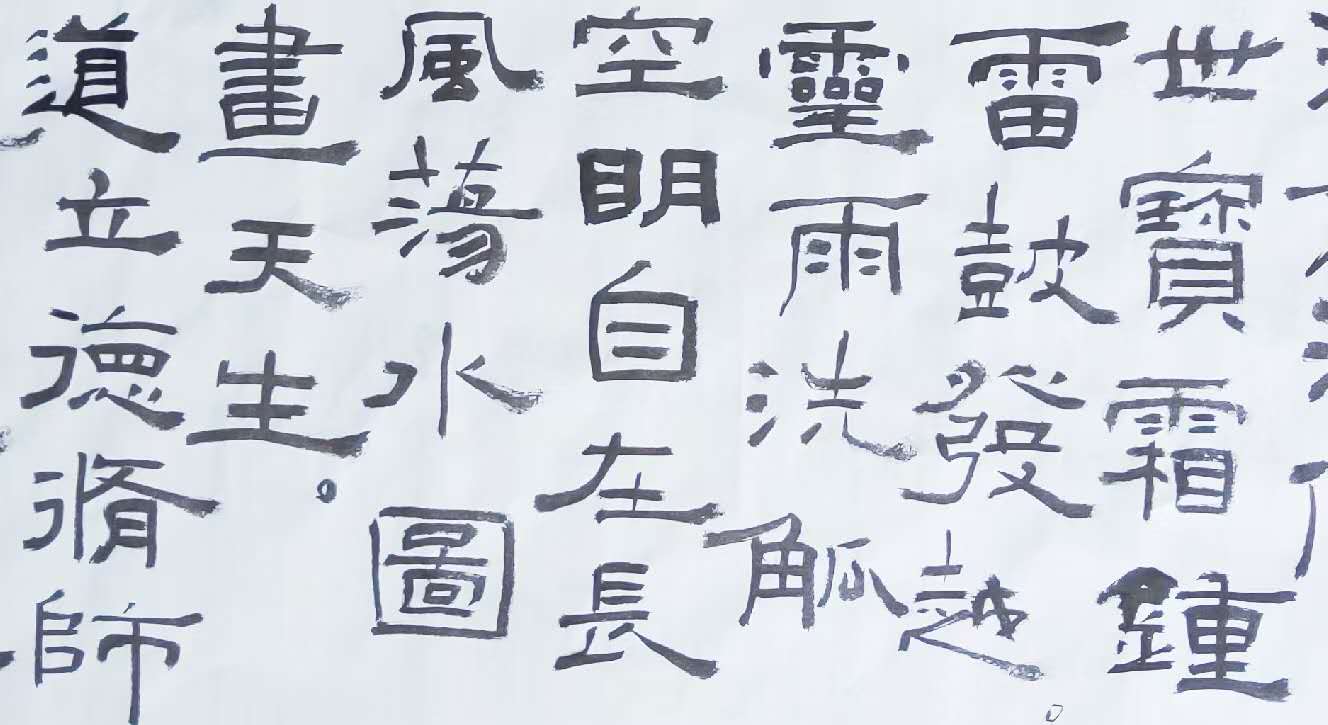 世寶霜鍾
雷鼓發越。
靈雨洗觚
空眀自在長
風蕩水圖
畫天生。
道立德脩師